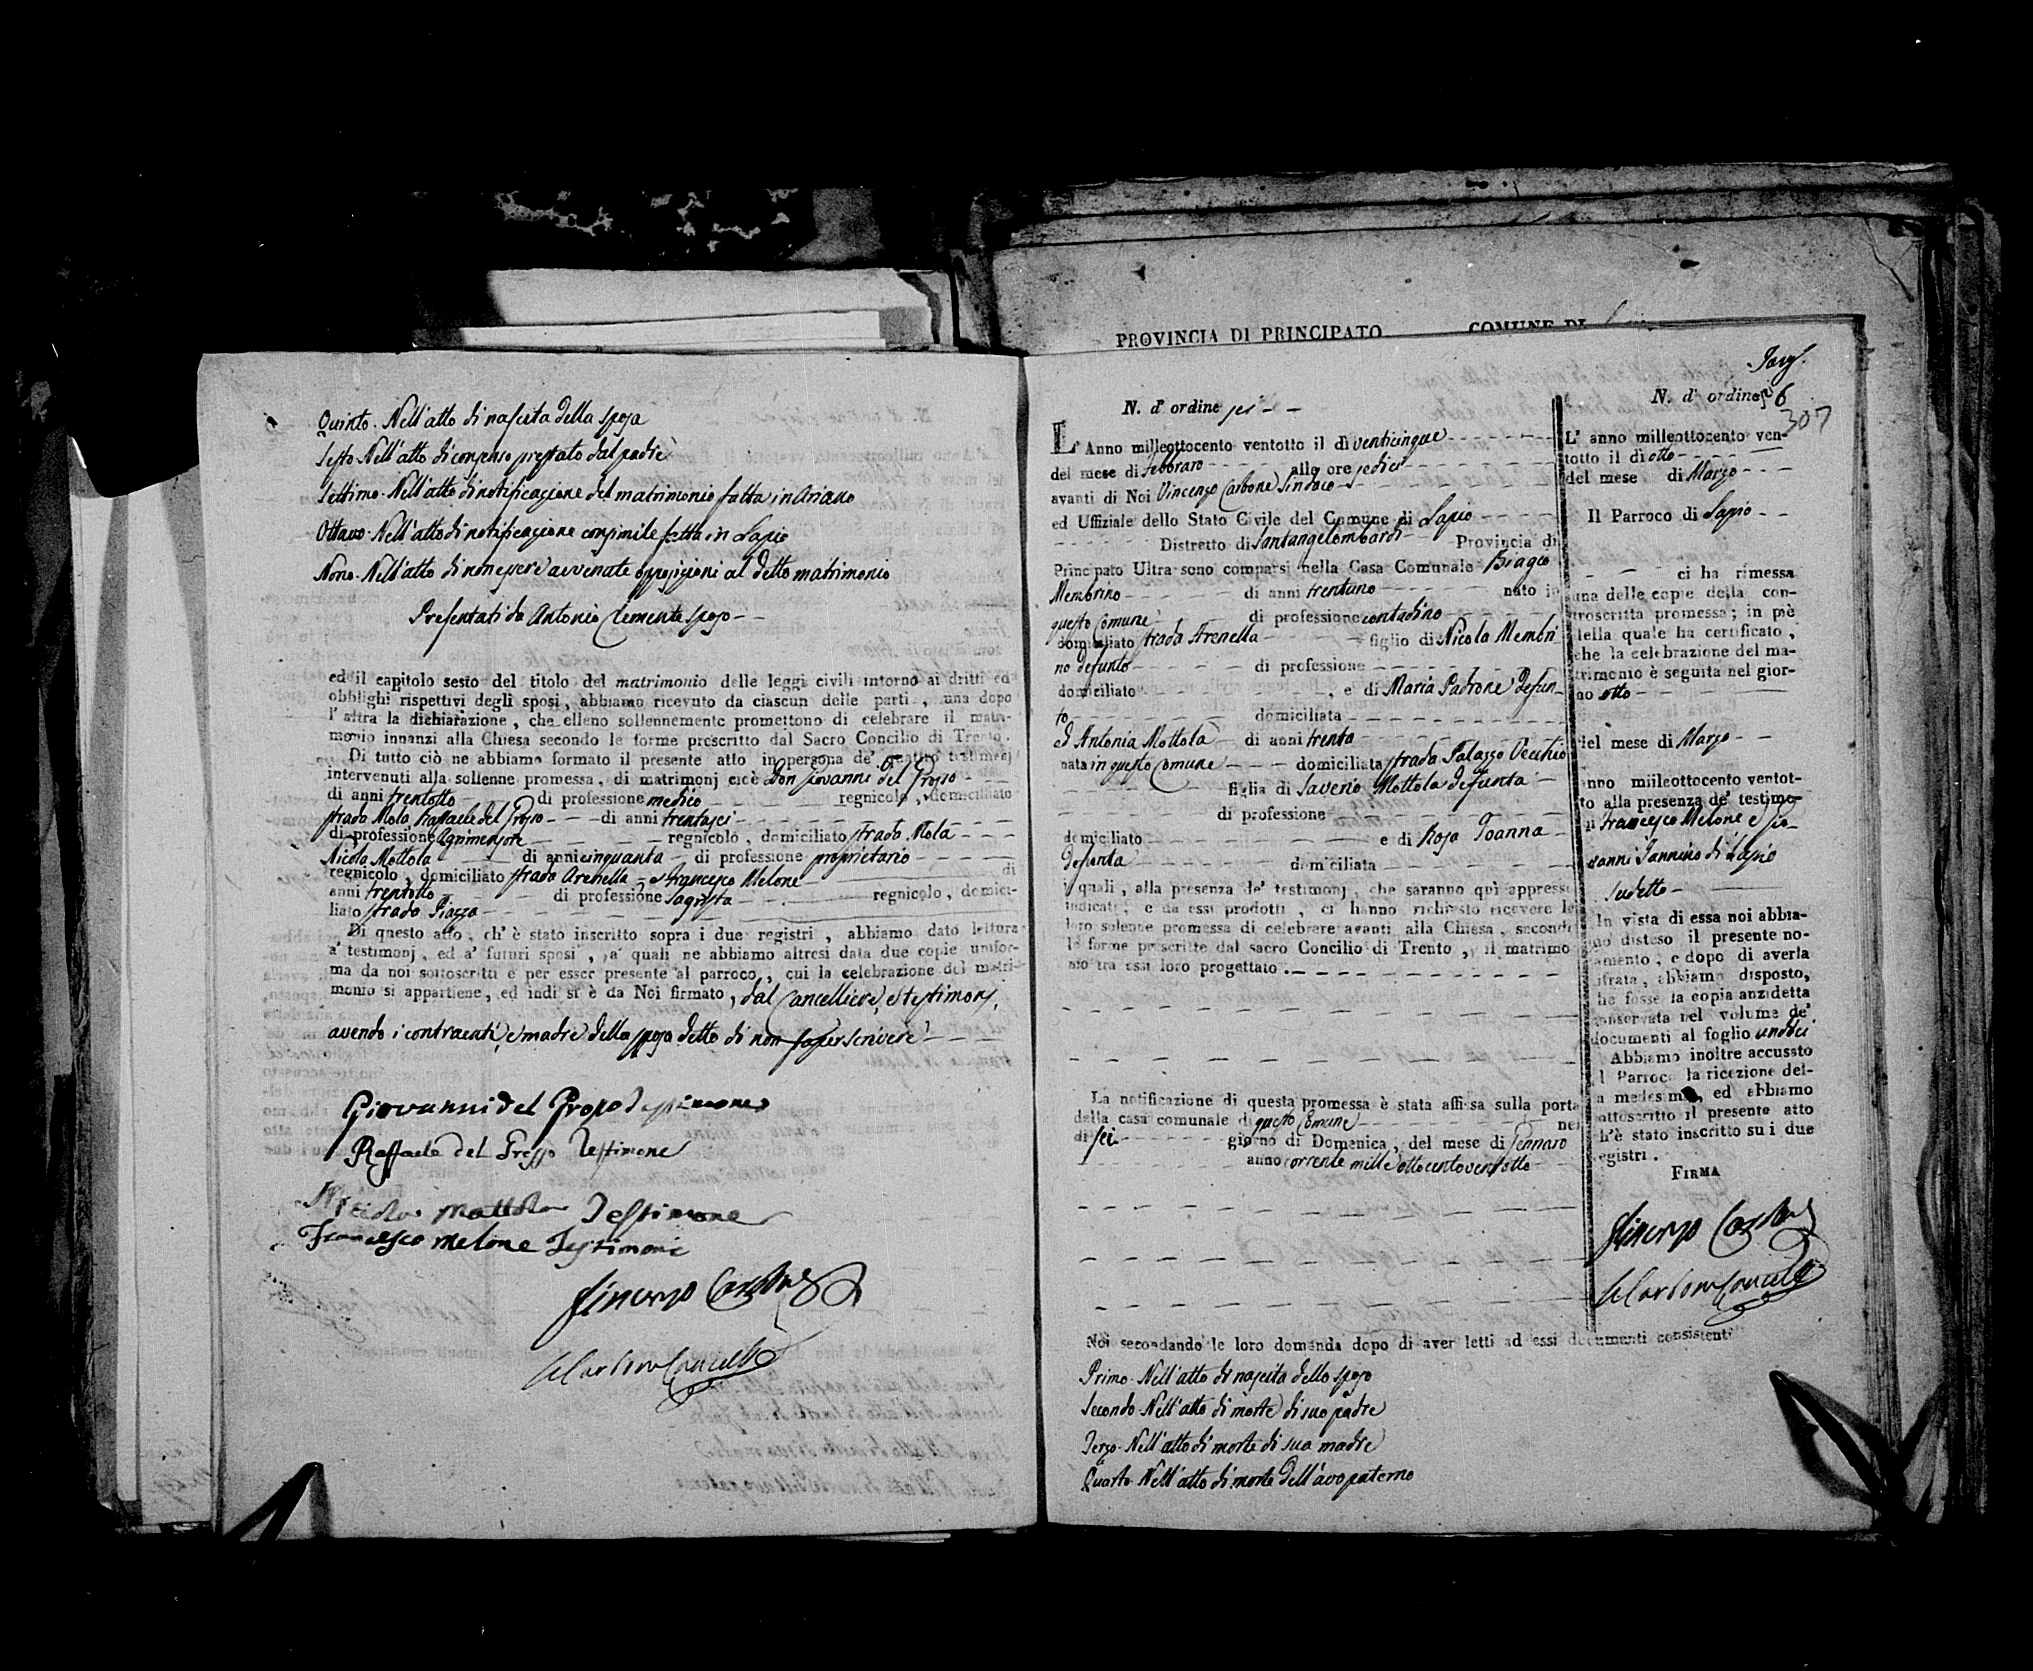 Quinto. Nell'atto di nascita della sposa
Sesto. Nell'atto di consenso prestato dal padre
Settimo. Nell'atto di notificazione del matrimonio fatta in Ariano
Ottavo. Nell'atto di notificazione consimile fatta in Lapio
Nono. Nell'atto di non essere avvenute opposizioni al detto matrimonio
Presentati da Antonio Clemente sposo
ed il capitolo sesto del titolo del matrimonio delle leggi civili intorno ai dritti ed
obblighi rispettivi degli sposi, abbiamo ricevuto da ciascun delle parti, una dopo
l'altra la dichiarazione, che elleno sollennemente promettono di celebrare il matri-
monio innanzi alla Chiesa secondo le forme prescritto dal Sacro Concilio di Trento.
Di tutto ciò ne abbiamo formato il presente atto in persona de' quattro testimonj
intervenuti alla sollenne promessa, di matrimonj cioè Don Giovanni del Grosso
di anni trentotto di professione medico regnicolo, domiciliato
strada Mola, Raffaele del Grosso di anni trentasei
di professione Agrimensore regnicolo, domiciliato strada Mola
Nicola Mottola di anni cinquanta di professione proprietario
regnicolo, domiciliato strada Arenella e Francesco Melone di
anni trentotto di professione Sagrista regnicolo, domici-
liato strada Piazza
Di questo atto, ch'è stato inscritto sopra i due registri, abbiamo dato lettura
a' testimonj, ed a' futuri sposi, a' quali ne abbiamo altresi data due copie unifor-
ma da noi sottoscritti e per esser presente al parroco, cui la celebrazione del matri-
monio si appartiene, ed indi si è da Noi firmato, dal Cancelliere, e testimonj,
avendo i contraenti, e madre della sposa detto di non saper scrivere
Giovanni del Grosso Testimone
Raffaele del Grosso Testimone
Nicola Mottola Testimone
Francesco Melone Testimone
Vincenzo Carbone
PROVINCIA DI PRINCIPATO COMUNE DI
N. d' ordine sei
L' Anno milleottocento ventotto il dì venticinque
del mese di Febbraro alle ore sedici
avanti di Noi Vincenzo Carbone Sindaco
ed Uffiziale dello Stato Civile del Comune di Lapio
Distretto di Santangelombardi Provincia di
Principato Ultra sono comparsi nella Casa Comunale Biagio
Membrino di anni trentuno nato in
questo Comune di professione contadino
domiciliato strada Arenella figlio di Nicola Membri
no defunto di professione
domiciliato, e di Maria Padrone defun
ta domiciliata
ed Antonia Mottola di anni trenta
nata in questo Comune domiciliata strada Palazzo Vecchio
figlia di Saverio Mottola defunta
di professione
domiciliato e di Rosa Joanna
defunta domiciliata
i quali, alla presenza de' testimonj, che saranno quì appresso
indicati, e da essi prodotti, ci hanno richiesto ricevere le
loro solenne promessa di celebrare avanti alla Chiesa, secondo
le forme prescritte dal sacro Concilio di Trento, il matrimo
nio tra essi loro progettato.
La notificazione di questa promessa è stata affissa sulla porta
della casa comunale di questo Comune nel
di sei giorno di Domenica, del mese di Gennaro
anno corrente mille ottocento ventotto
Noi secondando le loro domanda dopo di aver letti ad essi documenti consistenti
Primo. Nell'atto di nascita dello sposo
Secondo. Nell'atto di morte di suo padre
Terzo. Nell'atto di morte di sua madre
Quarto. Nell'atto di morte dell'avo paterno
N. d' ordine 6
307
L' anno milleottocento ven-
totto il dì otto
del mese di Marzo
Il Parroco di Lapio
ci ha rimessa
una delle copie della con-
troscritta promessa; in piè
della quale ha certificato,
che la celebrazione del ma-
trimonio è seguita nel gior-
no otto
del mese di Marzo
anno milleottocento ventot-
to alla presenza de' testimo-
nj Francesco Melone e Gio-
vanni Jannino di Lapio
sudetto
In vista di essa noi abbia-
mo disteso il presente no-
tamento, e dopo di averla
cifrata, abbiamo disposto,
che fosse la copia anzidetta
conservata nel volume de'
documenti al foglio undici
Abbiamo inoltre accusato
al Parroco la ricezione del-
la medesima, ed abbiamo
sottoscritto il presente atto
ch'è stato inscritto sui due
registri.
FIRMA
Vincenzo Carbone